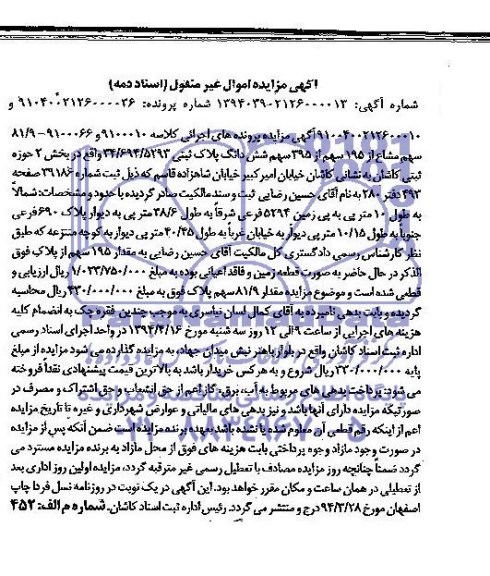 آگهی مزایده اموال غیر منقول (اسناد ذمه)
شماره آگهی: ۱۳۹۴۰۳۹۰۲۱۲۶۰۰۰۰۱۳ شماره پرونده: ۹۱۰۴۰۰۲۱۲۶۰۰۰۰۳۶ و
۹۱۰۴۰۰۲۱۲۶۰۰۰۰۱۰ آگهی مزایده پرونده های اجرائی کلاسه ۹۱۰۰۰۱۰ و ۹۱۰۰۰۶۶ - ۸۱/۹
سهم مشاع از ۱۹۵ سهم از ۳۹۵ سهم شش دانگ پلاک ثبتی ۳۴/۶۹۴/۵۲۹۳ واقع در بخش ۲ حوزه
ثبتی کاشان به نشانی کاشان خیابان امیرکبیر خیابان شاهزاده قاسم که ذیل ثبت شماره ۳۹۱۸۶ صفحه
۴۹۳ دفتر ۲۸۰ به نام آقای حسین رضایی ثبت و سند مالکیت صادر گردیده با حدود و مشخصات: شمالاً
به طول ۱۰ متر پی به پی زمین ۵۲۹۴ فرعی شرقاً به طول ۳۸/۶ متر پی به دیوار پلاک ۶۹۰ فرعی
جنوباً به طول ۱۰/۱۵ متر پی دیوار به خیابان غرباً به طول ۴۰/۴۵ متر پی دیوار به کوچه منتزعه که طبق
نظر کارشناس رسمی دادگستری کل مالکیت آقای حسین رضایی به مقدار ۱۹۵ سهم از پلاک فوق
الذکر در حال حاضر به صورت قطعه زمین و فاقد اعیانی بوده به مبلغ ۱/۰۲۳/۷۵۰/۰۰۰ ریال ارزیابی و
قطعی شده است و موضوع مزایده مقدار ۸۱/۹ سهم پلاک فوق به مبلغ ۴۳۰/۰۰۰/۰۰۰ ریال محاسبه
گردیده و بابت بدهی نامبرده به آقای کمال اسان نیاسری به موجب چندین فقره چک به انضمام کلیه
هزینه های اجرایی از ساعت ۹ الی ۱۲ روز سه شنبه مورخ ۱۳۹۴/۴/۱۶ در واحد اجرای اسناد رسمی
اداره ثبت اسناد کاشان واقع در بلوار باهنر نبش میدان جهاد، به مزایده گذارده می شود مزایده از مبلغ
پایه ۴۳۰/۰۰۰/۰۰۰ ریال شروع و به هر کس خریدار باشد به بالاترین قیمت پیشنهادی نقداً فروخته
می شود. پرداخت بدهی های مربوط به آب، برق، گاز اعم از حق انشعاب و حق اشتراک و مصرف در
صورتیکه مزایده دارای آنها باشد و نیز بدهی های مالیاتی و عوارض شهرداری و غیره تا تاریخ مزایده
اعم از اینکه رقم قطعی آن معلوم شده یا نشده باشد بعهده برنده مزایده است ضمن آنکه پس از مزایده
در صورت وجود مازاد وجوه پرداختی بابت هزینه های فوق از محل مازاد به برنده مزایده مسترد می
گردد ضمناً چنانچه روز مزایده مصادف با تعطیل رسمی غیر مترقبه گردد، مزایده اولین روز اداری بعد
از تعطیلی در همان ساعت و مکان مقرر خواهد بود. این آگهی در یک نوبت در روزنامه نسل فردا چاپ
اصفهان مورخ ۹۴/۳/۲۸ درج و منتشر می گردد. رئیس اداره ثبت اسناد کاشان. شماره م الف: ۴۵۲